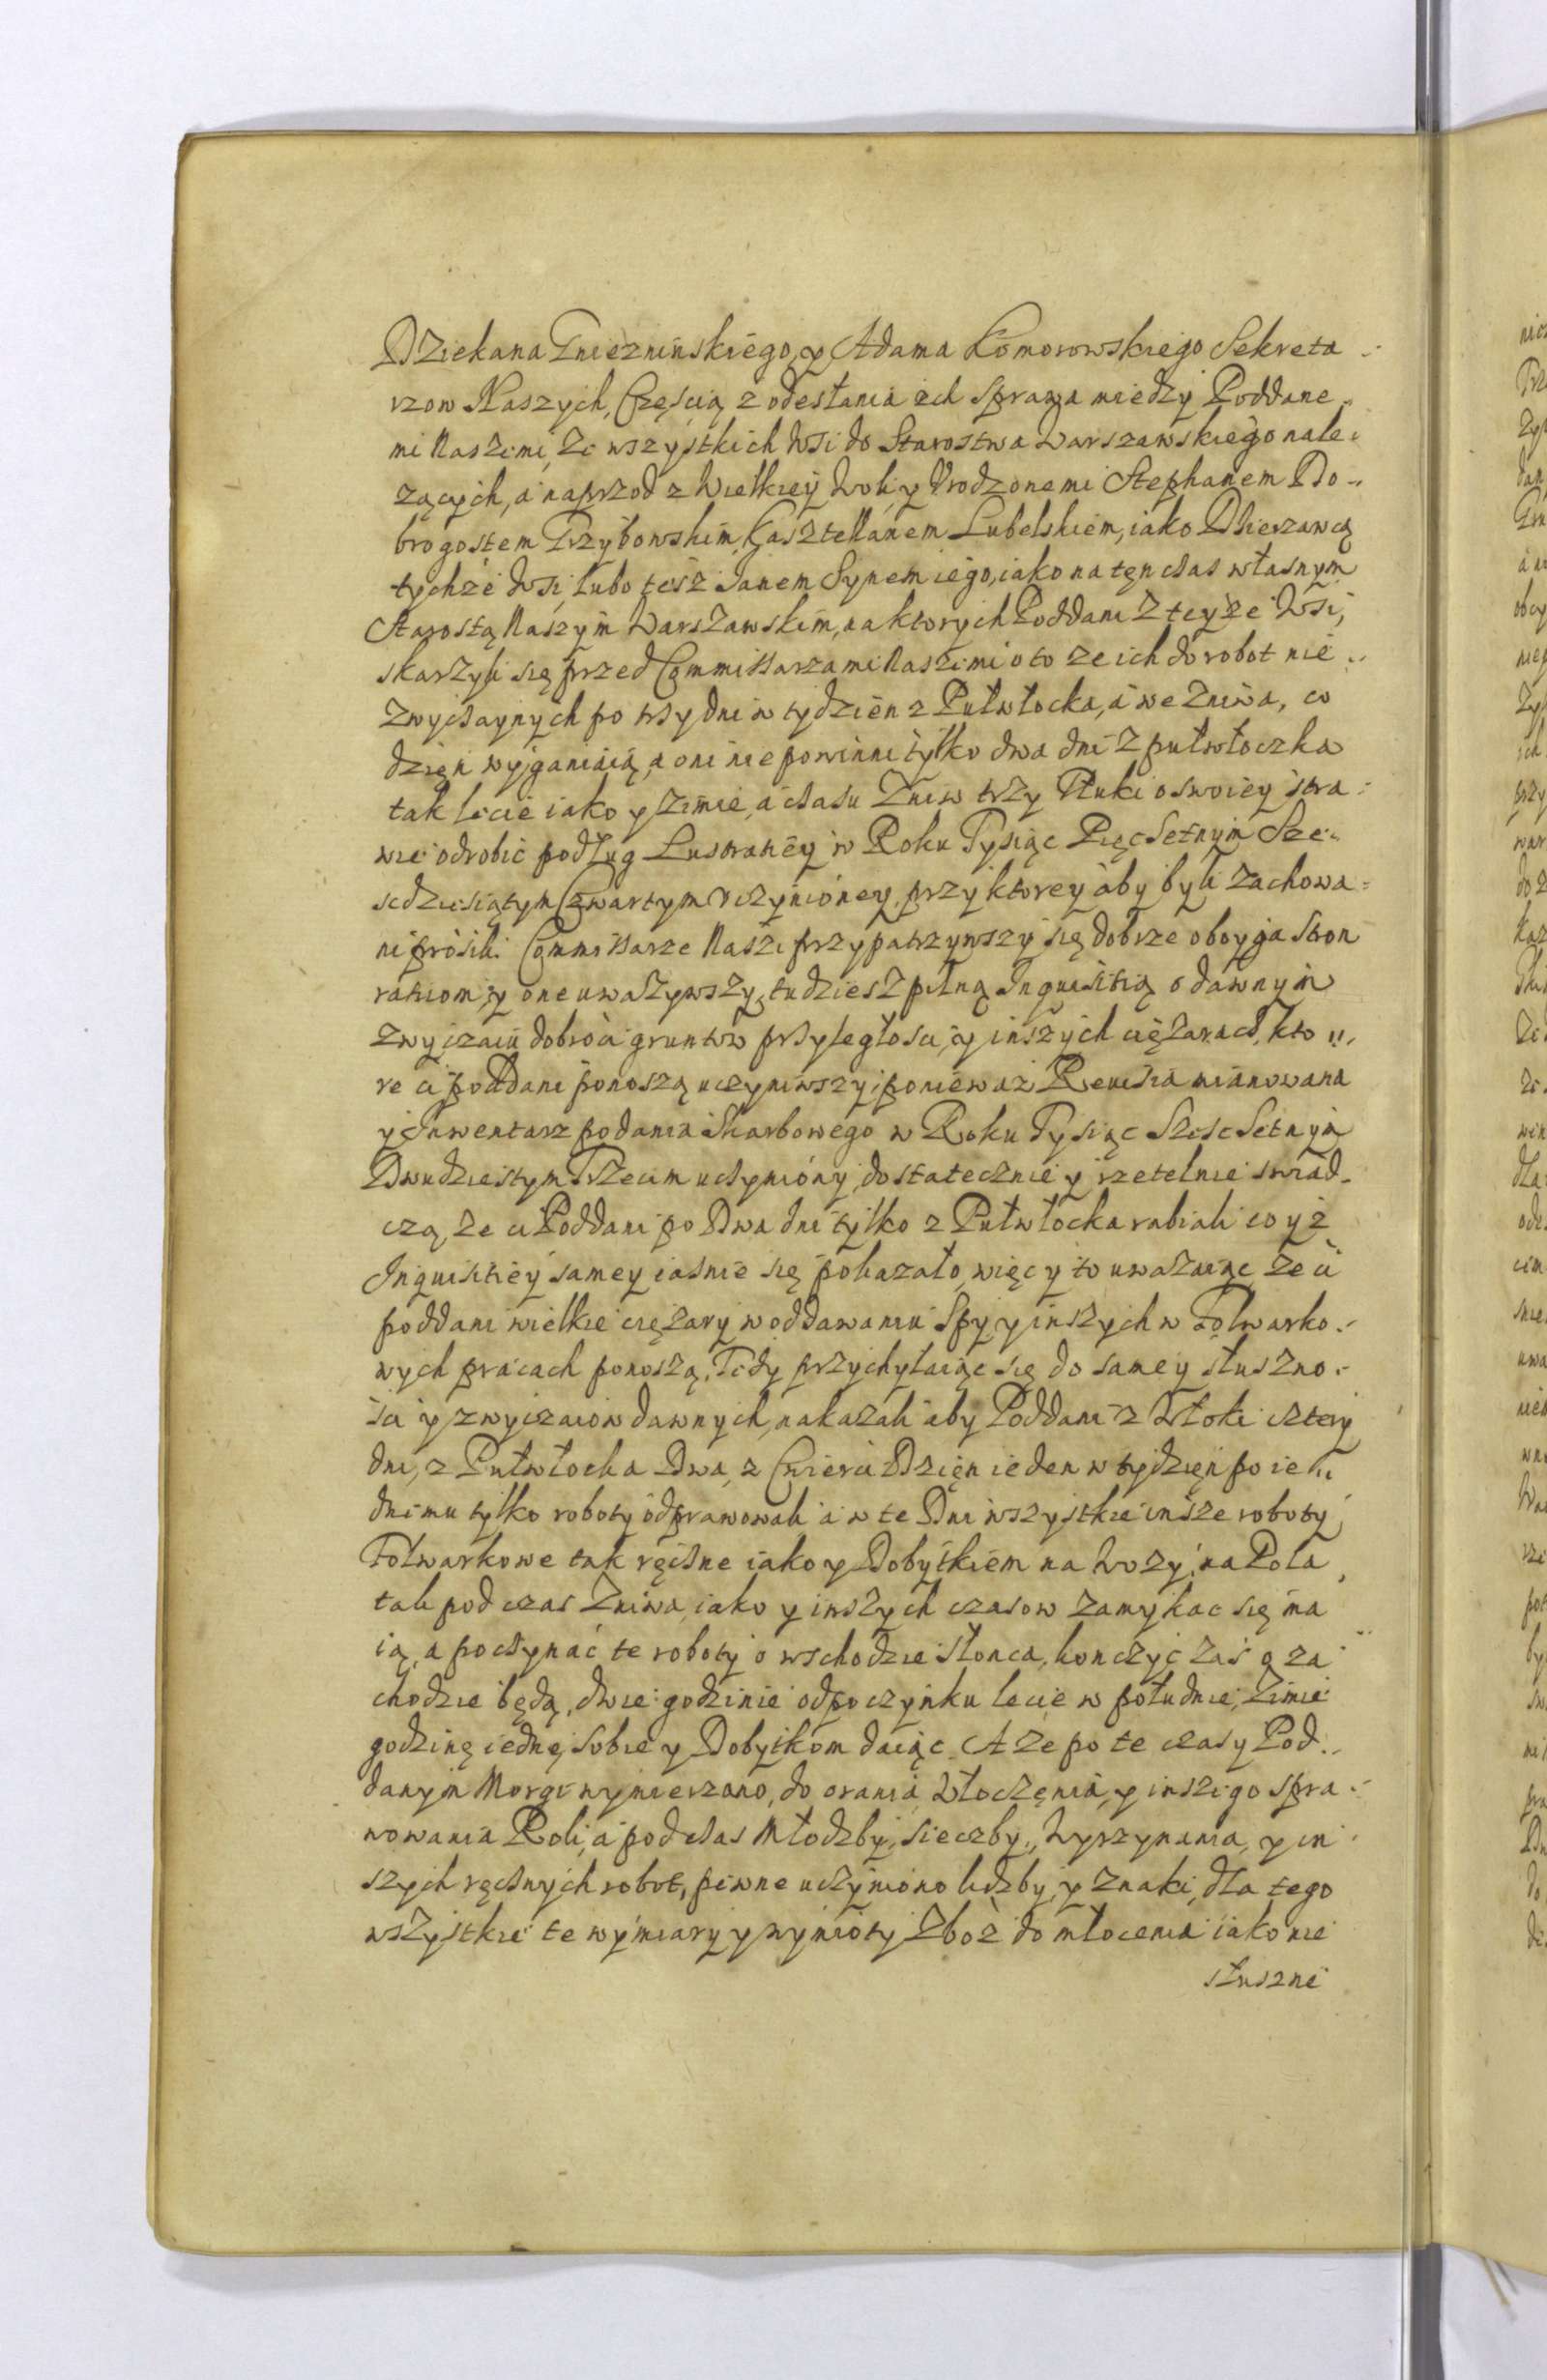 Dziekana Gnieznińskiego, y Adama Komorowskiego Sekreta
rzow Naszych, Częścią z odesłania ich sprawa miedzy Poddane
mi Naszemi, Ze wszystkich Wsi do Starostwa Warszawskiego nale
zących, á naprzod z Wielkiey Woli y Vrodzonemi Stephanem Do-
brogostem Grzybowskim, Kasztellanem Lubelskiem, iako Dzierzawcą
tychże Wsi, lubo tesz Janem Synem iego, iako na tęn czas własnym
Starostą Naszym Warszawskim, na ktorych Poddani z teyże Wsi,
skarzyli się przed Commissarzami Naszemi o to ze ich do robot nie
zwyczaynych po trzy dni w tydzień z Pułwłocka, á we Zniwa, co
dzięń wyganiaią, a oni nie powinni tylko dwa dni z pułwłoczka
tak lecie iako y Zimie, á czasu Zniw trzy Tłuki o swoiey stra
wie odrobić podług Lustratiey w Roku Tysiąc Pięc Setnym Sze
sdziesiątym Czwartym vczynioney, przy ktorey aby byli zachowa
ni prosili. Commissarze Naszi przypatrzywszy się dobrze oboyga stron
ratiom, y one uwazywszy, tudziesz pilną Inquisitią o dawnym
zwyczaiu dobroci gruntow przyległosci, y inszych cięzarach, kto
re ci poddani ponoszą uczyniwszy, poniewaz Reuisia mianowana
y Inwentarz podania Skarbowego w Roku Tysiąc Szesc Setnym
Dwudziestym Trzecim uczyniony, dostatecznie y rzetelnie swiad
czą, ze ci Poddani po Dwa dni tylko z Pułwłocka rabiali co y z
Inquisitiey samey iasnie się pokazało, więc y to uwazaiąc ze ci
poddani wielkie cięzary w oddawaniu Spy y inszych w Folwarko
wych pracach ponoszą, Tedy przychylaiąc się do samey słuszno
ści y zwyczaiow dawnych, nakazali aby Poddani z Włoki cztery
dni, z Pułwłocka Dwa, z Cwierci Dzięń ieden w tydzięń po ie
dnemu tylko roboty odprawowali á w te Dni wszystkie insze roboty
Folwarkowe tak ręczne iako y Dobytkiem na Wozy, na Pola
tak pod czas Zniwa, iako y inszych czasow zamykac się ma
ią, a poczynać te roboty o wschodzie słonca, konczyć zaś o za
chodzie będą, dwie godzinie odpoczynku lecie w południe, Zimie
godzinę iednę, sobie y Dobytkom daiąc. A że po te czasy Pod
danym Morgi wymierzano, do orania, Włoczęnia, y inszego spra
wowania Roli, á pod czas Młodźby, Sieczby, Wyrzynania, y in
szych ręcznych robot, pewne uczyniono liczby, y znaki, dla tego
wszystkie te wymiary y wymioty Zboż do młocenia iako nie
słuszne